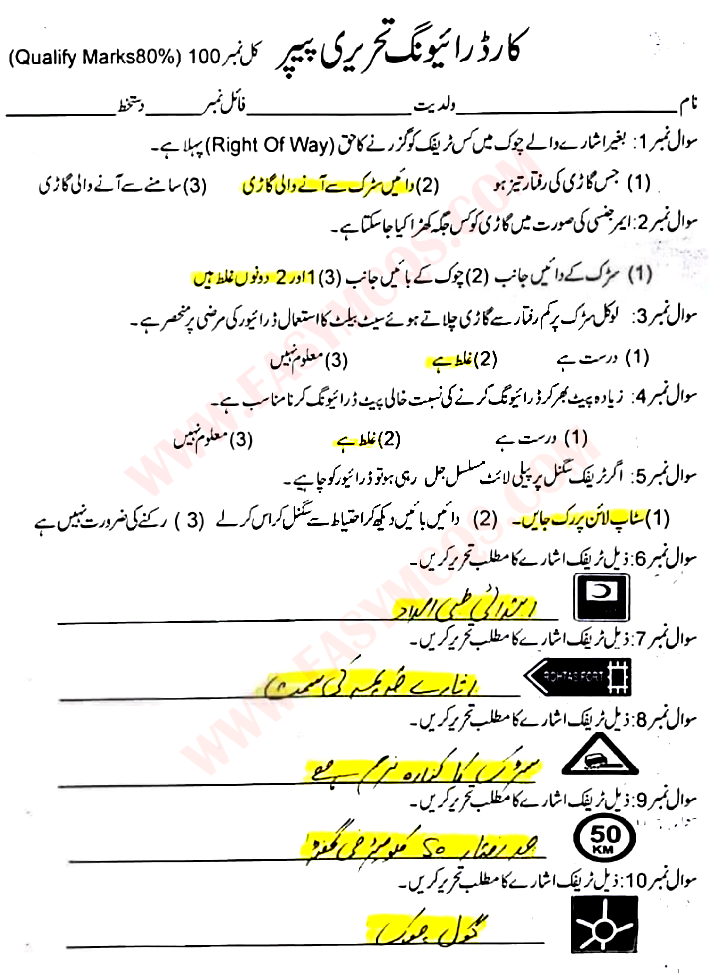 کار ڈرائیونگ تحریری پیپر کل نمبر 100 (Qualify Marks80%)
نام ولدیت فائل نمبر دستخط
سوال نمبر 1: بغیر اشارے والے چوک میں کس ٹریفک کو گزرنے کا حق (Right Of Way) پہلا ہے۔
(1) جس گاڑی کی رفتار تیز ہو (2) دائیں سڑک سے آنے والی گاڑی (3) سامنے سے آنے والی گاڑی
سوال نمبر 2: ایمرجنسی کی صورت میں گاڑی کو کس جگہ کھڑا کیا جا سکتا ہے۔
(1) سڑک کے دائیں جانب (2) چوک کے بائیں جانب (3) 1 اور 2 دونوں غلط ہیں
سوال نمبر 3: لوکل سڑک پر کم رفتار سے گاڑی چلاتے ہوئے سیٹ بیلٹ کا استعمال ڈرائیور کی مرضی پر منحصر ہے۔
(1) درست ہے (2) غلط ہے (3) معلوم نہیں
سوال نمبر 4: زیادہ پیٹ بھر کر ڈرائیونگ کرنے کی نسبت خالی پیٹ ڈرائیونگ کرنا مناسب ہے۔
(1) درست ہے (2) غلط ہے (3) معلوم نہیں
سوال نمبر 5: اگر ٹریفک سگنل پر پیلی لائٹ مسلسل جل رہی ہو تو ڈرائیور کو چاہیے۔
(1) سٹاپ لائن پر رک جائیں۔ (2) دائیں بائیں دیکھ کر احتیاط سے سگنل کراس کر لے (3) رکنے کی ضرورت نہیں ہے
سوال نمبر 6: ذیل ٹریفک اشارے کا مطلب تحریر کریں۔
ابتدائی طبی امداد
سوال نمبر 7: ذیل ٹریفک اشارے کا مطلب تحریر کریں۔
ROHTAS FORT
کی سمت
سوال نمبر 8: ذیل ٹریفک اشارے کا مطلب تحریر کریں۔
سڑک کا کنارہ نرم ہے
سوال نمبر 9: ذیل ٹریفک اشارے کا مطلب تحریر کریں۔
50 KM
حد رفتار 50 کلومیٹر فی گھنٹہ
سوال نمبر 10: ذیل ٹریفک اشارے کا مطلب تحریر کریں۔
گول چوک
WWW.EASYMCQS.COM
WWW.EASYMCQS.COM